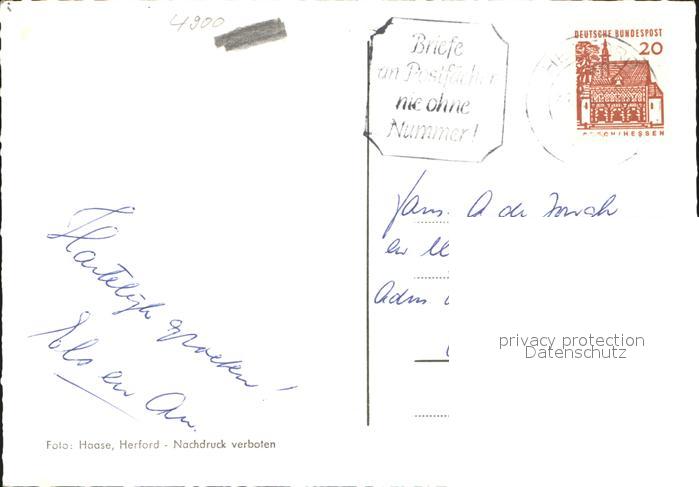 4900
Briefe
an Postfächer
nie ohne
Nummer!
DEUTSCHE BUNDESPOST
20
LORSCH/HESSEN
Fam. A de
en
Adm
Hartelijk groeten!
Els en An.
privacy protection
Datenschutz
Foto: Haase, Herford - Nachdruck verboten